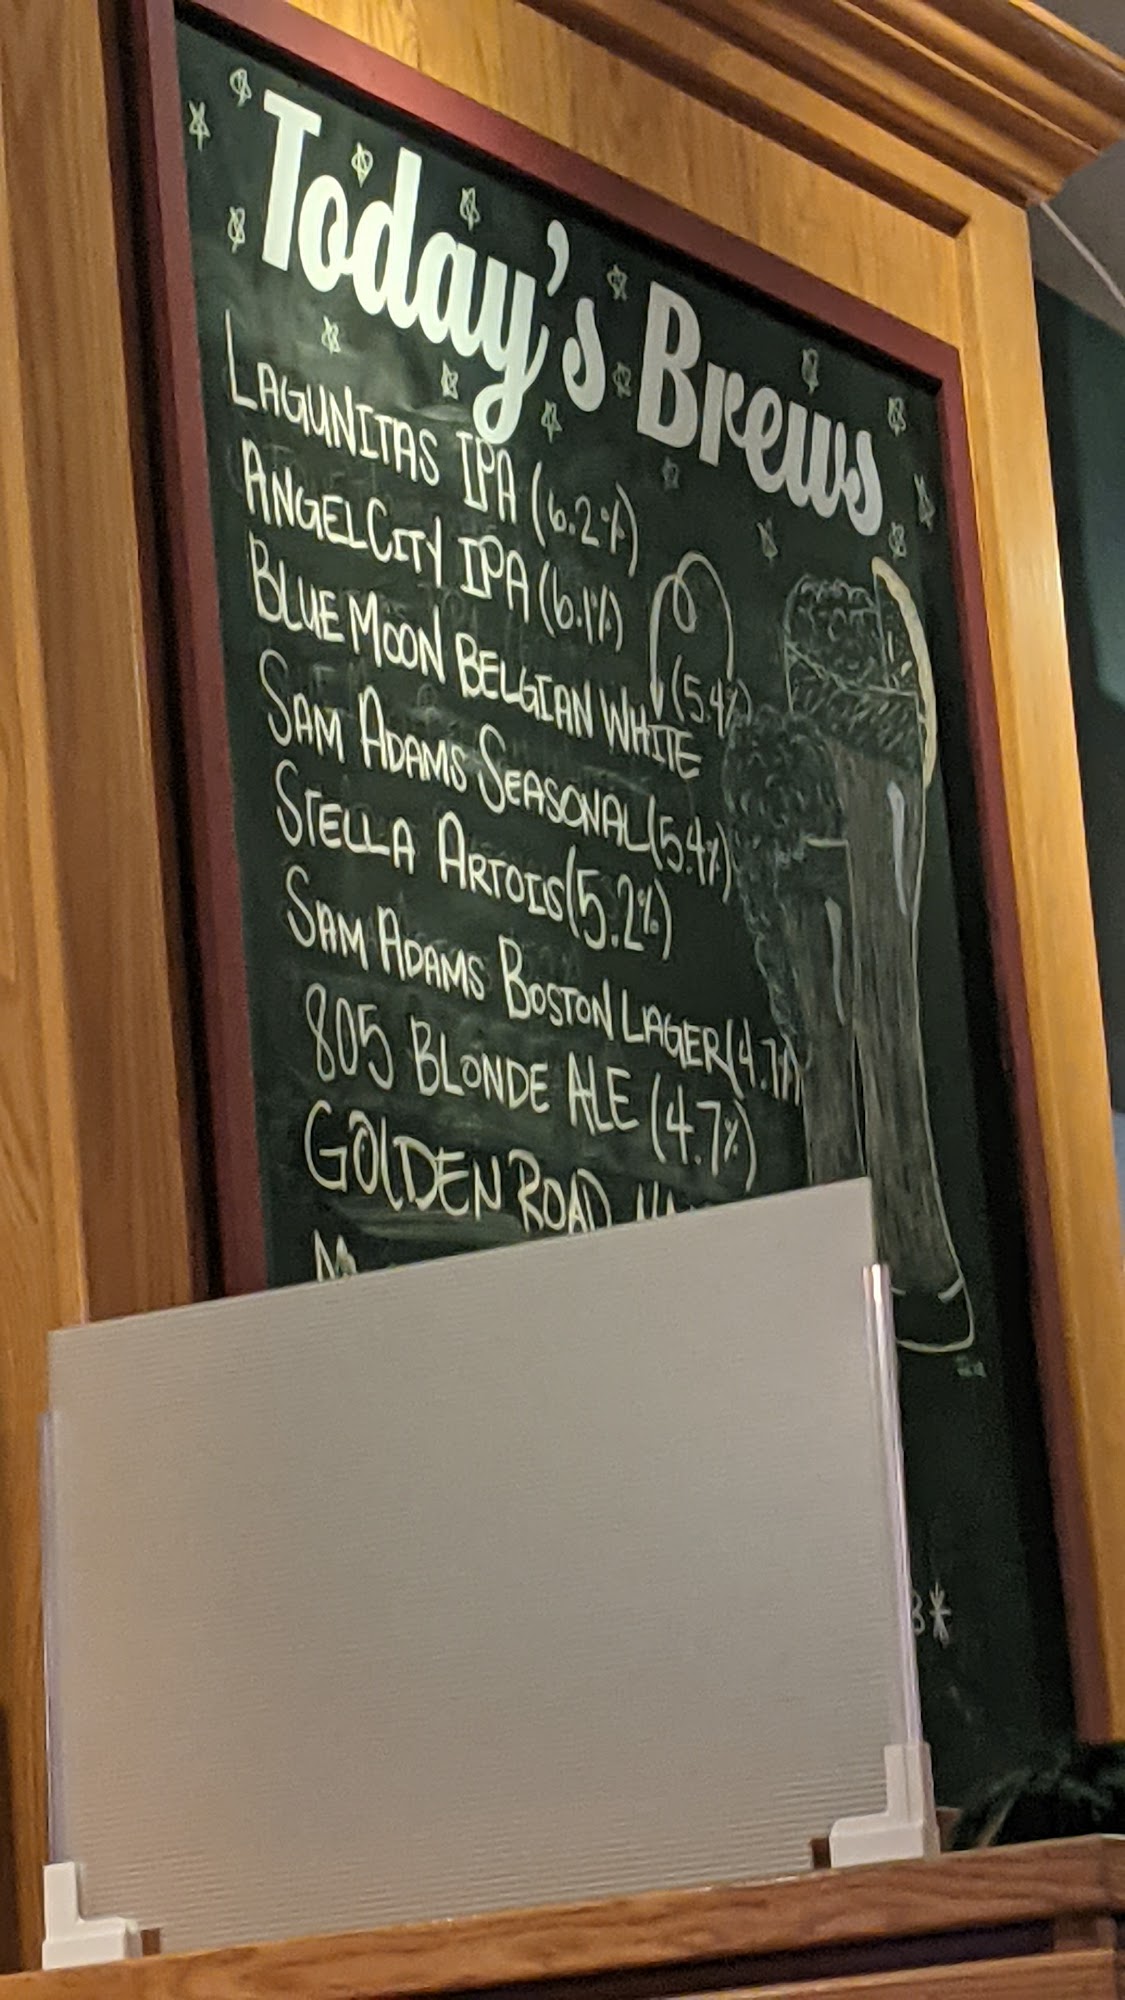 Today's Brews
LAGUNITAS IPA (6.2%)
ANGEL CITY IPA (6.1%)
BLUE MOON BELGIAN WHITE (5.4%)
SAM ADAMS SEASONAL (5.4%)
STELLA ARTOIS (5.2%)
SAM ADAMS BOSTON LAGER (4.7%)
805 BLONDE ALE (4.7%)
GOLDEN ROAD